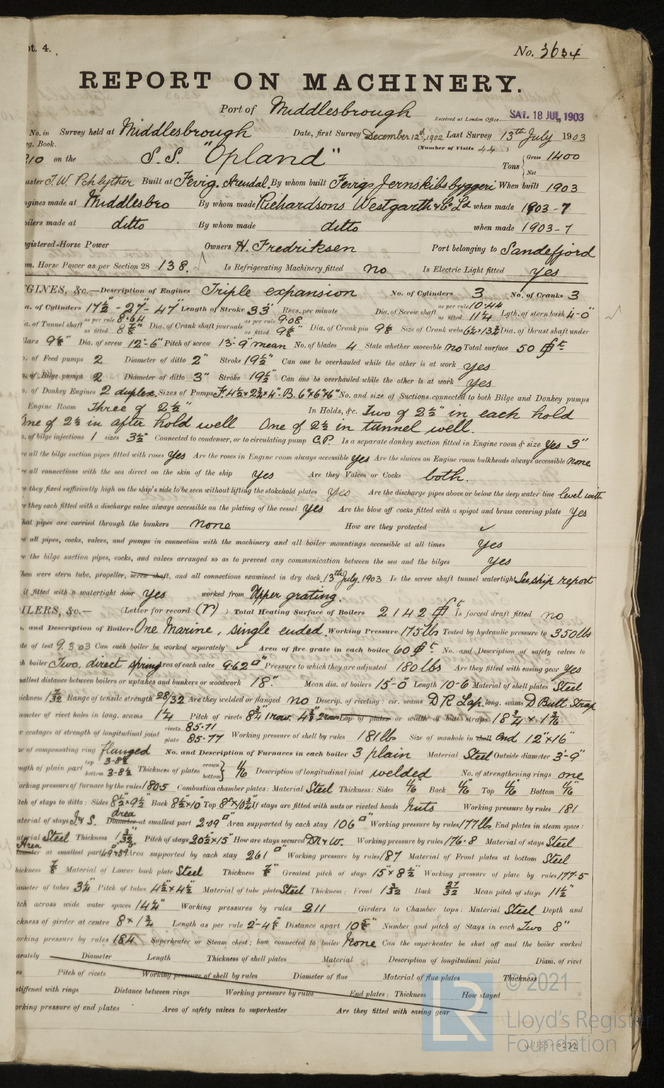 pt. 4.
No. 3634
REPORT ON MACHINERY.
Port of Middlesbrough
Received at London Office SAT. 18 JUL 1903
No. in Survey held at Middlesbrough Date, first Survey December 12th, 1902 Last Survey 13th July 1903
g. Book. (Number of Visits 44)
on the S.S. "Opland" Tons Gross 1400 Net
aster T. W. Built at By whom built When built 1903
gines made at Middlesbro By whom made Richardsons Westgarth & Co Ld when made 1903-7
oilers made at ditto By whom made ditto when made 1903-7
gistered Horse Power Owners H. Fredriksen Port belonging to Sandefjord
m. Horse Power as per Section 28 138. Is Refrigerating Machinery fitted no Is Electric Light fitted yes
GINES, &c.— Description of Engines Triple expansion No. of Cylinders 3 No. of Cranks 3
. of Cylinders 17½ - 27 - 47" Length of Stroke 33" Revs. per minute Dia. of Screw shaft as per rule 10.44 as fitted 11¼ Lgth. of stern bush 4-0"
. of Tunnel shaft as per rule 8.64 as fitted Dia. of Crank shaft journals as per rule 9.08 as fitted Dia. of Crank pin Size of Crank webs Dia. of thrust shaft under
llars Dia. of screw 12-6" Pitch of screw 13-9 mean No. of blades 4 State whether moveable no Total surface 50
. of Feed pumps 2 Diameter of ditto 2" Stroke 19½" Can one be overhauled while the other is at work yes
. of Bilge pumps 2 Diameter of ditto 3" Stroke 19½" Can one be overhauled while the other is at work yes
. of Donkey Engines 2 duplex Sizes of Pumps No. and size of Suctions connected to both Bilge and Donkey pumps
Engine Room Three of 2½" In Holds, &c. Two of 2½" in each hold
One of 2½ in after hold well One of 2½ in tunnel well.
. of bilge injections 1 sizes 3½" Connected to condenser, or to circulating pump C.P. Is a separate donkey suction fitted in Engine room & size yes 3"
e all the bilge suction pipes fitted with roses yes Are the roses in Engine room always accessible yes Are the sluices on Engine room bulkheads always accessible none
e all connections with the sea direct on the skin of the ship yes Are they Valves or Cocks both.
e they fixed sufficiently high on the ship's side to be seen without lifting the stokehold plates yes Are the discharge pipes above or below the deep water line level with
e they each fitted with a discharge valve always accessible on the plating of the vessel yes Are the blow off cocks fitted with a spigot and brass covering plate yes
hat pipes are carried through the bunkers none How are they protected
e all pipes, cocks, valves, and pumps in connection with the machinery and all boiler mountings accessible at all times yes
e the bilge suction pipes, cocks, and valves arranged so as to prevent any communication between the sea and the bilges yes
hen were stern tube, propeller, screw shaft, and all connections examined in dry dock 13th July, 1903 Is the screw shaft tunnel watertight See ship report
it fitted with a watertight door yes worked from Upper grating.
ILERS, &c.— (Letter for record (r)) Total Heating Surface of Boilers 2142 Is forced draft fitted no
. and Description of Boilers One Marine, single ended Working Pressure 175lbs Tested by hydraulic pressure to 350lbs
te of test 9.3.03 Can each boiler be worked separately Area of fire grate in each boiler 60 No. and Description of safety valves to
h boiler Two, direct spring Area of each valve 9.62" Pressure to which they are adjusted 180 lbs Are they fitted with easing gear yes
allest distance between boilers or uptakes and bunkers or woodwork 18" Mean dia. of boilers 15-0 Length 10-6 Material of shell plates Steel
ickness Range of tensile strength 28/32 Are they welded or flanged no Descrip. of riveting: cir. seams D R Lap. long. seams D Butt Strap
ameter of rivet holes in long. seams 1¼ Pitch of rivets Lap of plates or width of butt straps
r centages of strength of longitudinal joint rivets 85.71 plate 85.77 Working pressure of shell by rules 181 lbs Size of manhole in End 12"x16"
e of compensating ring flanged No. and Description of Furnaces in each boiler 3 plain Material Steel Outside diameter 3-9"
ngth of plain part top 3-8½ bottom 3-8½ Thickness of plates crown bottom Description of longitudinal joint welded No. of strengthening rings one
orking pressure of furnace by the rules 180.5 Combustion chamber plates: Material Steel Thickness: Sides Back Top Bottom
tch of stays to ditto: Sides Back Top If stays are fitted with nuts or riveted heads nuts Working pressure by rules 181
aterial of stays area Diameter at smallest part Area supported by each stay 106 Working pressure by rules 177lb End plates in steam space:
aterial Steel Thickness Pitch of stays How are stays secured Working pressure by rules 176.8 Material of stays Steel
Area Diameter at smallest part Area supported by each stay 261 Working pressure by rules 187 Material of Front plates at bottom Steel
hickness Material of Lower back plate Steel Thickness Greatest pitch of stays Working pressure of plate by rules 177.5
ameter of tubes 3¼ Pitch of tubes 4½x4½ Material of tube plates Steel Thickness: Front Back Mean pitch of stays 11½"
tch across wide water spaces 14½" Working pressures by rules 211 Girders to Chamber tops: Material Steel Depth and
ckness of girder at centre Length as per rule Distance apart Number and pitch of Stays in each Two 8"
rking pressure by rules 184 Superheater or Steam chest; how connected to boiler None Can the superheater be shut off and the boiler worked
arately Diameter Length Thickness of shell plates Material Description of longitudinal joint Diam. of rivet
Pitch of rivets Working pressure of shell by rules Diameter of flue Material of flue plates Thickness
stiffened with rings Distance between rings Working pressure by rules End plates: Thickness How stayed
orking pressure of end plates Area of safety valves to superheater Are they fitted with easing gear
© 2021
Lloyd's Register
Foundation